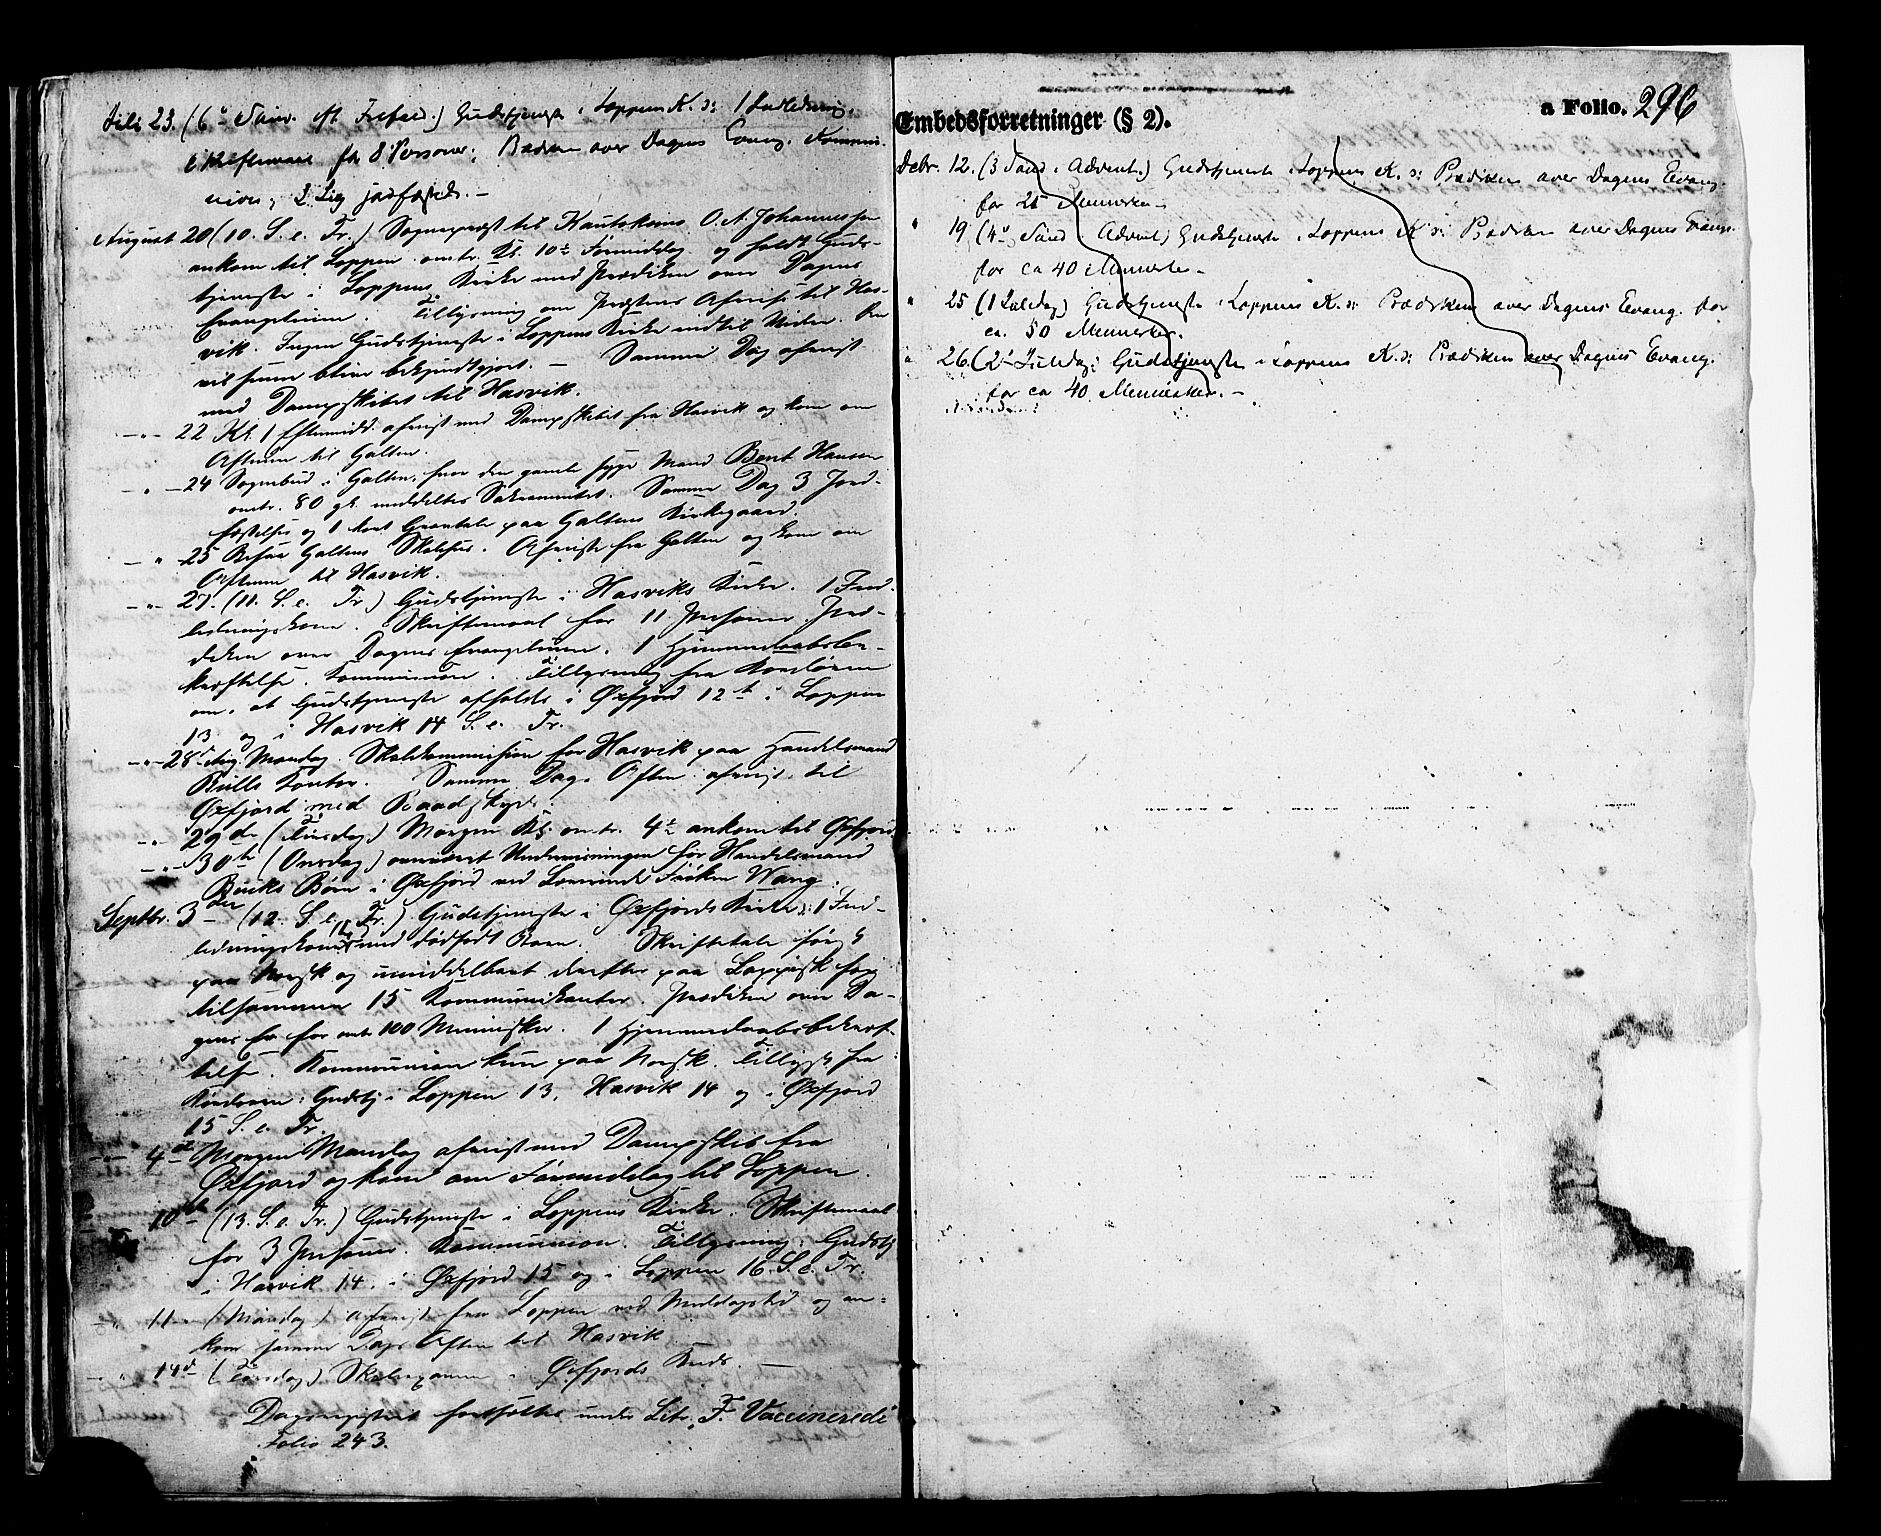 Juli 23. (6te Sønd. eft. Trefold.) Gudstjeneste i Loppens K. ɔ: 1 Indledning,
Skriftemaal for 8 Personer; Prædiken over Dagens Evang. Kommu-
nion; 2 Lig jordfæstede. –
August 20 (10. S. e. Tr.) Sognepræst til Kautokeino O. A. Johannessen
ankom til Loppen omtr. Kl. 10½ Formiddag og holdt Guds-
tjeneste i Loppens Kirke med Prædiken over Dagens
Evangelium. Tillysning om Præstens Afreise til Has-
vik. Ingen Gudstjeneste i Loppens Kirke indtil videre. Den
vil senere blive bekjendtgjort. – Samme Dag afreist
med Dampskibet til Hasvik.
–"– 22 Kl. 1 Eftermidd. afreist med Dampskibet fra Hasvik og kom om
Aftenen til Galten.
–"– 24 Sognebud i Galten, hvor den gamle syge Mand Bent Hansen
omtr. 80 gl. meddeltes Sakramentet. Samme Dag 3 Jord-
fæstelser og 1 kort Gravtale paa Galtens Kirkegaard.
–"– 25 Besøgt Galtens Skolehus. Afreiste fra Galten og kom om
Aftenen til Hasvik.
–"– 27. (11. S. e. Tr.) Gudstjeneste i Hasviks Kirke. 1 Ind-
ledningskone. Skriftemaal for 11 Personer. Præ-
diken over Dagens Evangelium. 1 Hjemmedaabsbe-
kræftelse. Kommunion. Tillysning fra Kordøren
om, at Gudstjeneste afholdes i Øxfjord 12te i Loppen
13 og i Hasvik 14 S. e. Tr.
–"– 28de Aug. Mandag. Skolekommission for Hasvik paa Handelsmand
Kontor. Samme Dags Aften afreist til
Øxfjord med Baadskyds.
–"– 29de (Tirsdag) Morgen Kl. omtr. 4½ ankom til Øxfjord
–"– 30te (Onsdag) overværet Undervisningen for Handelsmand
Bucks Børn i Øxfjord ved Lærerinde Frøken Wang.
Septbr. 3die (12. S. e. Tr.) Gudstjeneste i Øxfjords Kirke ɔ: 1 Ind-
ledningskone med dødfødt Barn. Skriftetale først
paa Norsk og umiddelbart derefter paa Lappisk for
tilsammen 15 Kommunikanter. Prædiken over Da-
gens Ev for omtr 100 Mennesker. 1 Hjemmedaabsbekræf-
telse. Kommunion kun paa Norsk. Tillyst fra
Kordøren: Gudstj i Loppen 13, Hasvik 14 og i Øxfjord
15 S. e. Tr.
–"– 4de Morgen Mandag afreist med Dampskib fra
Øxfjord og kom om Formiddag til Loppen.
10de (13. S. e. Tr.) Gudstjeneste i Loppens Kirke. Skriftemaal
for 3 Personer. Kommunion. Tillysning: Gudstj
i Hasvik 14. i Øxfjord 15 og i Loppen 16. S. e. Tr.
–"– 11 (Mandag) afreist fra Loppen ved Middagstid og an-
kom samme Dags Aften til Hasvik
–"– 14de (Torsdag) Skoleexamen i Øxfjords Kreds. –
Dagsregistret fortsættes under Litr. F. Vaccinerede
Folio 243.
Embedsforretninger (§ 2).
a Folio. 296
Debr. 12. (3 Sønd. i Advent.) Gudstjeneste i Loppens K. ɔ: Prædiken over Dagens Evang.
for 25 Mennesker –
" 19 (4de Sønd. i Advent) Gudstjeneste i Loppens K ɔ: Prædiken over Dagens Evang.
for ca 40 Mennesker –
" 25 (1 Juledag) Gudstjeneste i Loppens K. ɔ: Prædiken over Dagens Evang. for
ca. 50 Mennesker.
" 26. (2den Juledag: Gudstjeneste i Loppens K. ɔ: Prædiken over Dagens Evang.
for ca 40 Mennesker. –